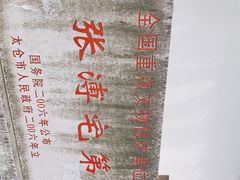 全国重点文物保护单位
张溥宅第
国务院二〇〇六年公布
太仓市人民政府二〇〇六年立